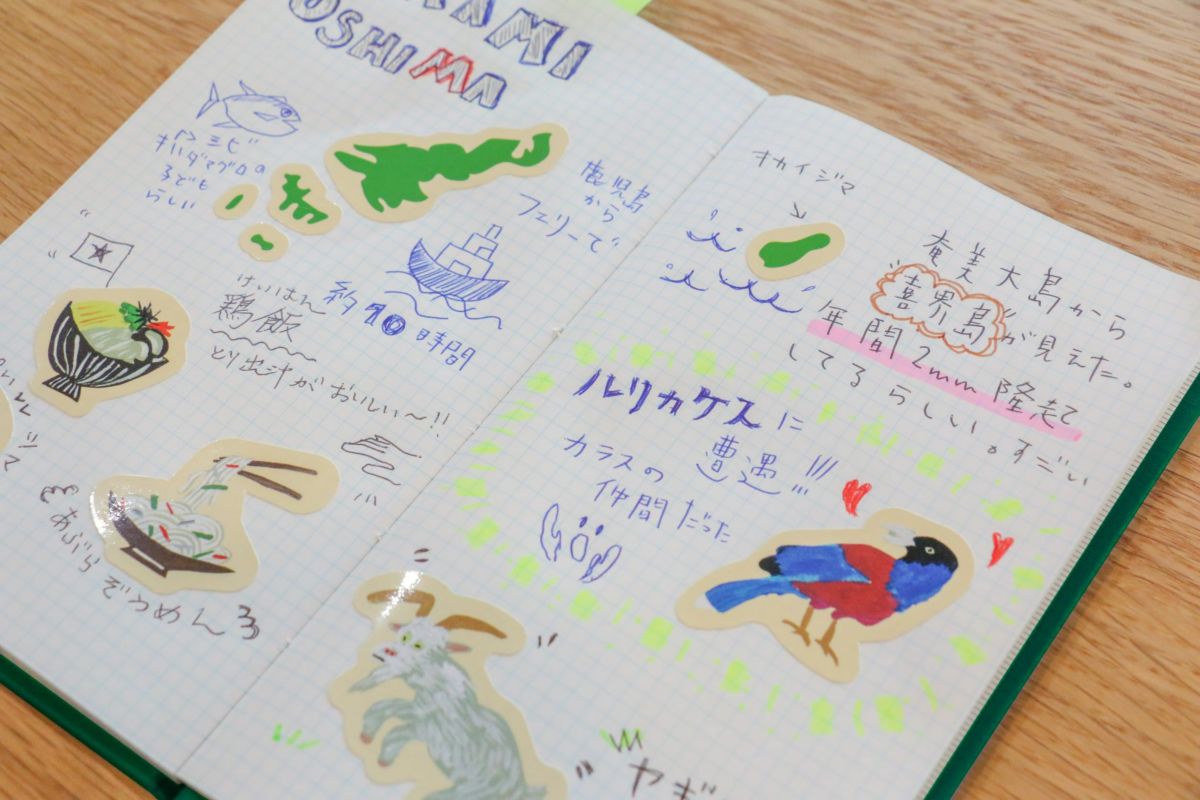 OSHIMA
キハダマグロの
子ども
らしい
鹿児島
から
フェリーで
約10時間
けいはん
鶏飯
とり出汁がおいしい〜!!
あぶらぞうめん
オカイジマ
奄美大島から
"喜界島"が見えた。
年間2mm隆起
してるらしい。すごい
ルリカケスに
遭遇!!!
カラスの
仲間だった
ヤギ